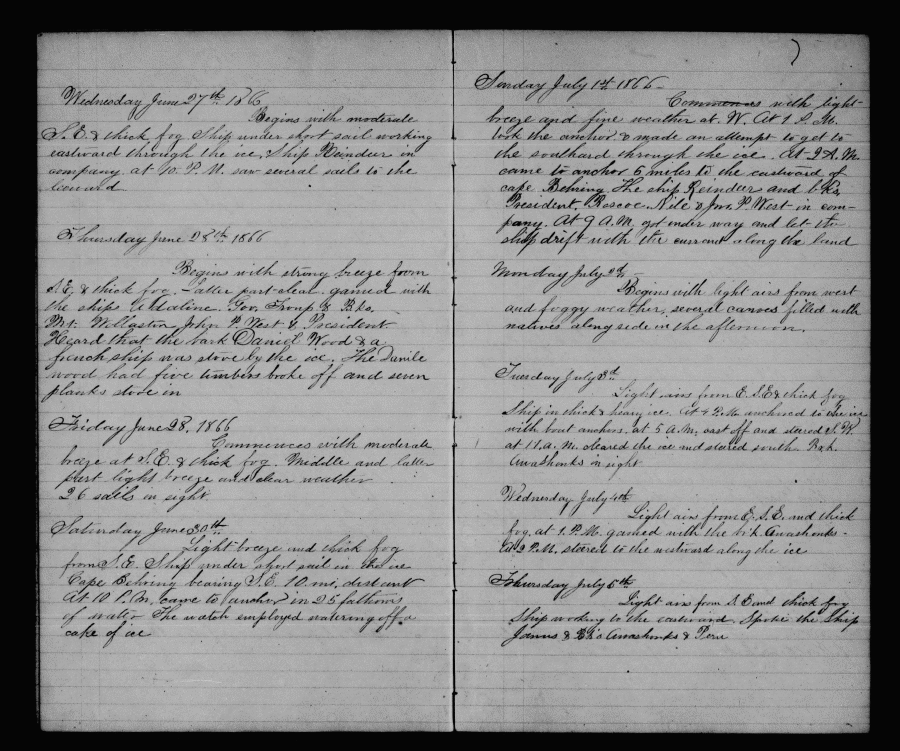 Wednesday June 27th 1866
Begins with moderate
S. E. & thick fog Ship under short sail working
eastward through the ice. Ship Reindeer in
company at 10. P. M. saw several sails to the
leeward
Thursday June 28th 1866
Begins with strong breeze from
S. E. & thick fog. Latter part clear. gamed with
the ships Adaline. Gov. Troup & Bks.
Mt. Wollaston John P. West & President
Heard that the bark Daniel Wood & a
french ship was stove by the ice. The Danile
wood had five timbers broke off and seven
planks stove in
Friday June 28, 1866
Commences with moderate
breeze at S. E. & thick fog. Middle and latter
part light breeze and clear weather
26 sails in sight.
Saturday June 30th
Light breeze and thick fog
from S. E. Ship under short sail in the ice
Cape Behring bearing S. E. 10. ms, distant
At 10 P. M. came to anchor in 25 fathoms
of water The watch employed watering off a
cake of ice
7
Sunday July 1st 1866 -
Commences with light
breeze and fine weather at. W. At 1. P. M.
took the anchor & made an attempt to get to
the southard through the ice. At 2 A. M.
came to anchor 6 miles to the eastward of
cape Behring The ship Reindeer and bks
President. Roscoe. Nile & Jno. P. West in com-
pany. At 9 A. M. got under way and let the
ship drift with the current along the land
Monday July 2d -
Begins with light airs from west
and foggy weather, several canoes filled with
natives along side in the afternoon.
Tuesday July 3d
Light airs from E. S. E & thick fog
Ship in thick & heavy ice. At 4 P. M. anchored to the ice
with boat anchors. at 5 A. M. cast off and steered S. W.
at 11 a. m. cleared the ice and steared south Bark
Awashonks in sight
Wednesday July 4th
Light airs from E. S. E. and thick
fog. at 1. P. M. gamed with the bk Awashonks -
At 2 P. M. steered to the westward along the ice
Thursday July 5th
Light airs from S. E and thick fog
Ship working to the eastward. Spoke the Ship
Janus & Bks Awashonks & Peru